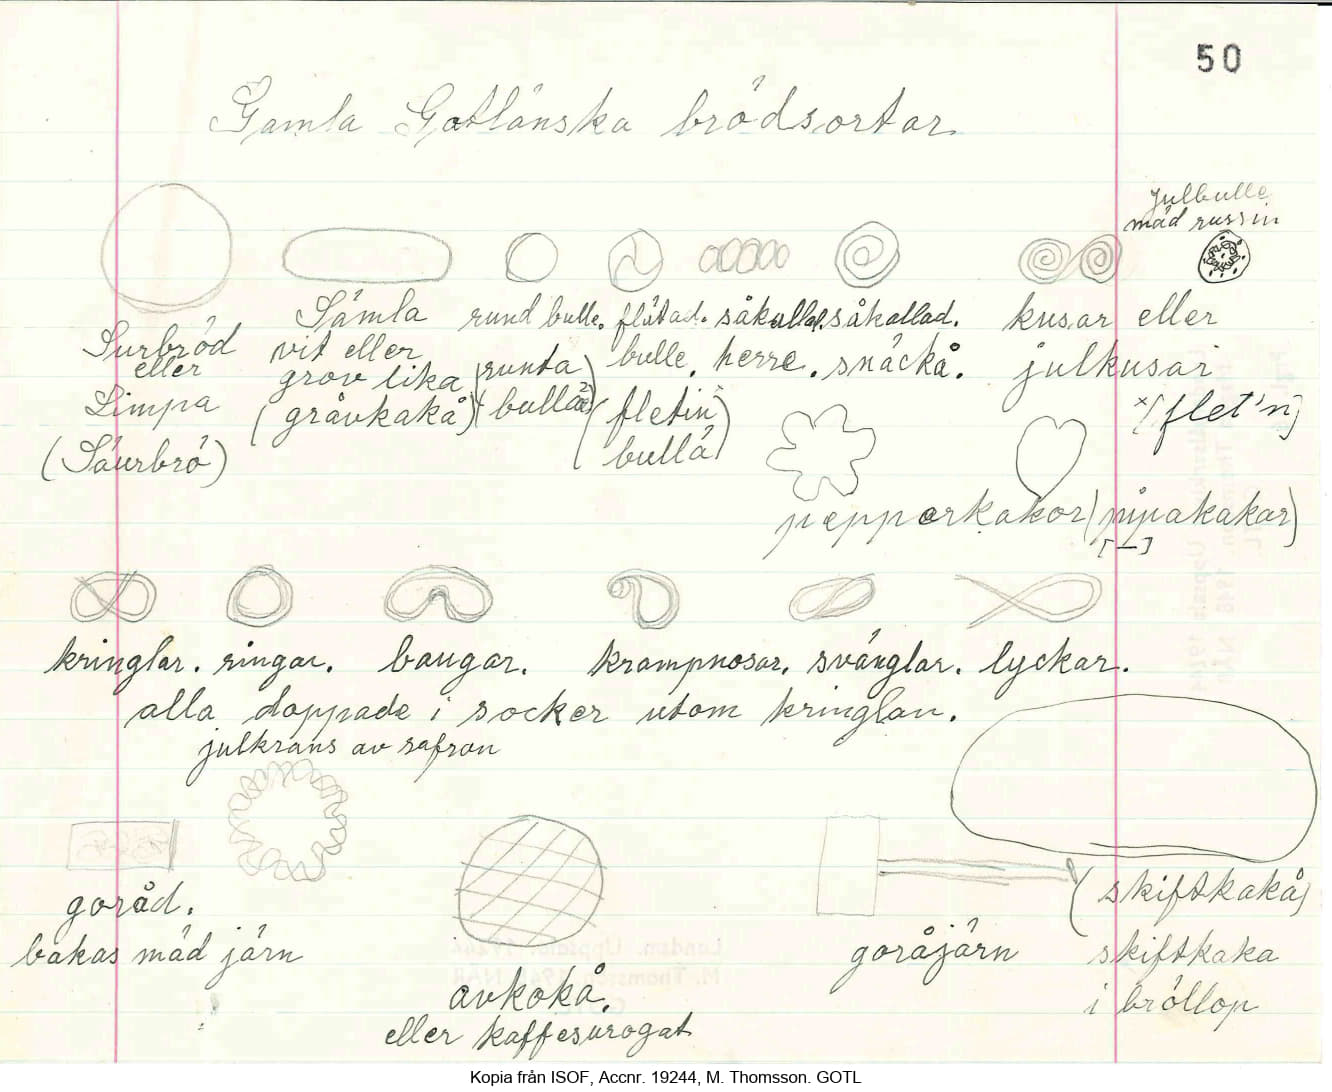 50
Gamla Gotlänska brödsortar.
julbulle
mäd russin
Surbröd
eller
Limpa
(Säurbrö)
Sämla
vit eller
grov lika
(gråvkakå)
rund bulle.
(runta
bullar)
flätad.
bulle.
(fletin
bullä)
såkallad.
herre.
såkallad.
snäckå.
kusar eller
julkusar
×[flet'n]
pepparkakor (pipakakar)
[–]
kringlar. ringar. baugar. krampnosar. svänglar. lyckar.
alla doppade i socker utom kringlan.
julkrans av safran
goråd.
bakas mäd järn
avkokå.
eller kaffesurogat
goråjärn
(skiftkakå)
skiftkaka
i bröllop
Kopia från ISOF, Accnr. 19244, M. Thomsson. GOTL